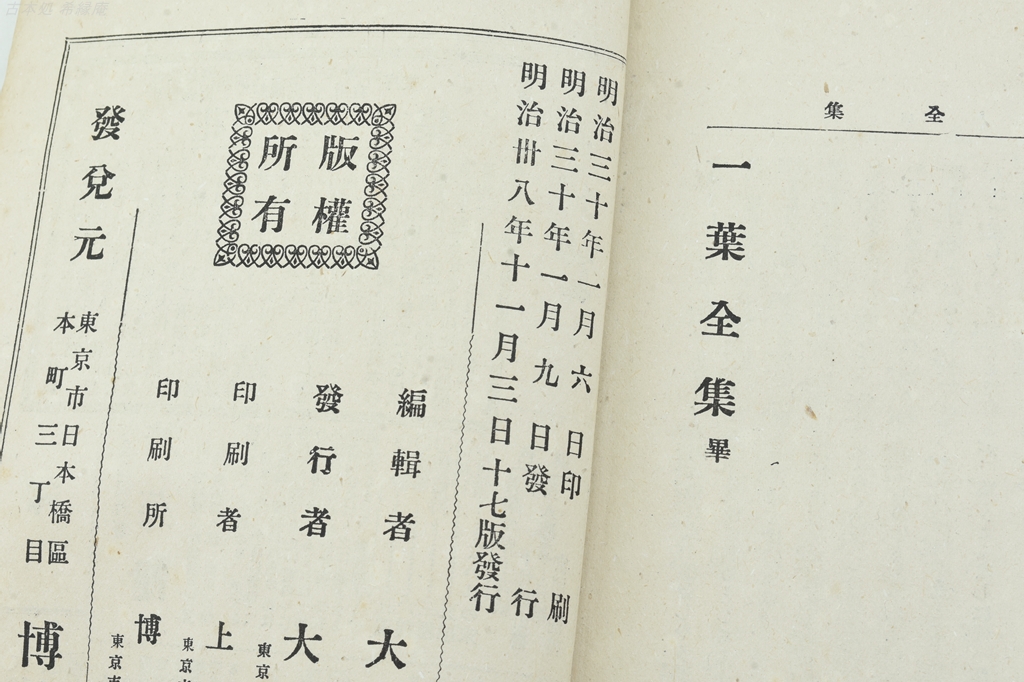 古本処 希縁庵
全集
一葉全集畢
明治三十年一月六日印刷
明治三十年一月九日發行
明治卅八年十一月三日十七版發行
版權
所有
編輯者 大
發行者 大
東京
印刷者 上
東京
印刷所 博
東京市
發兌元
東京市日本橋區
本町三丁目
博